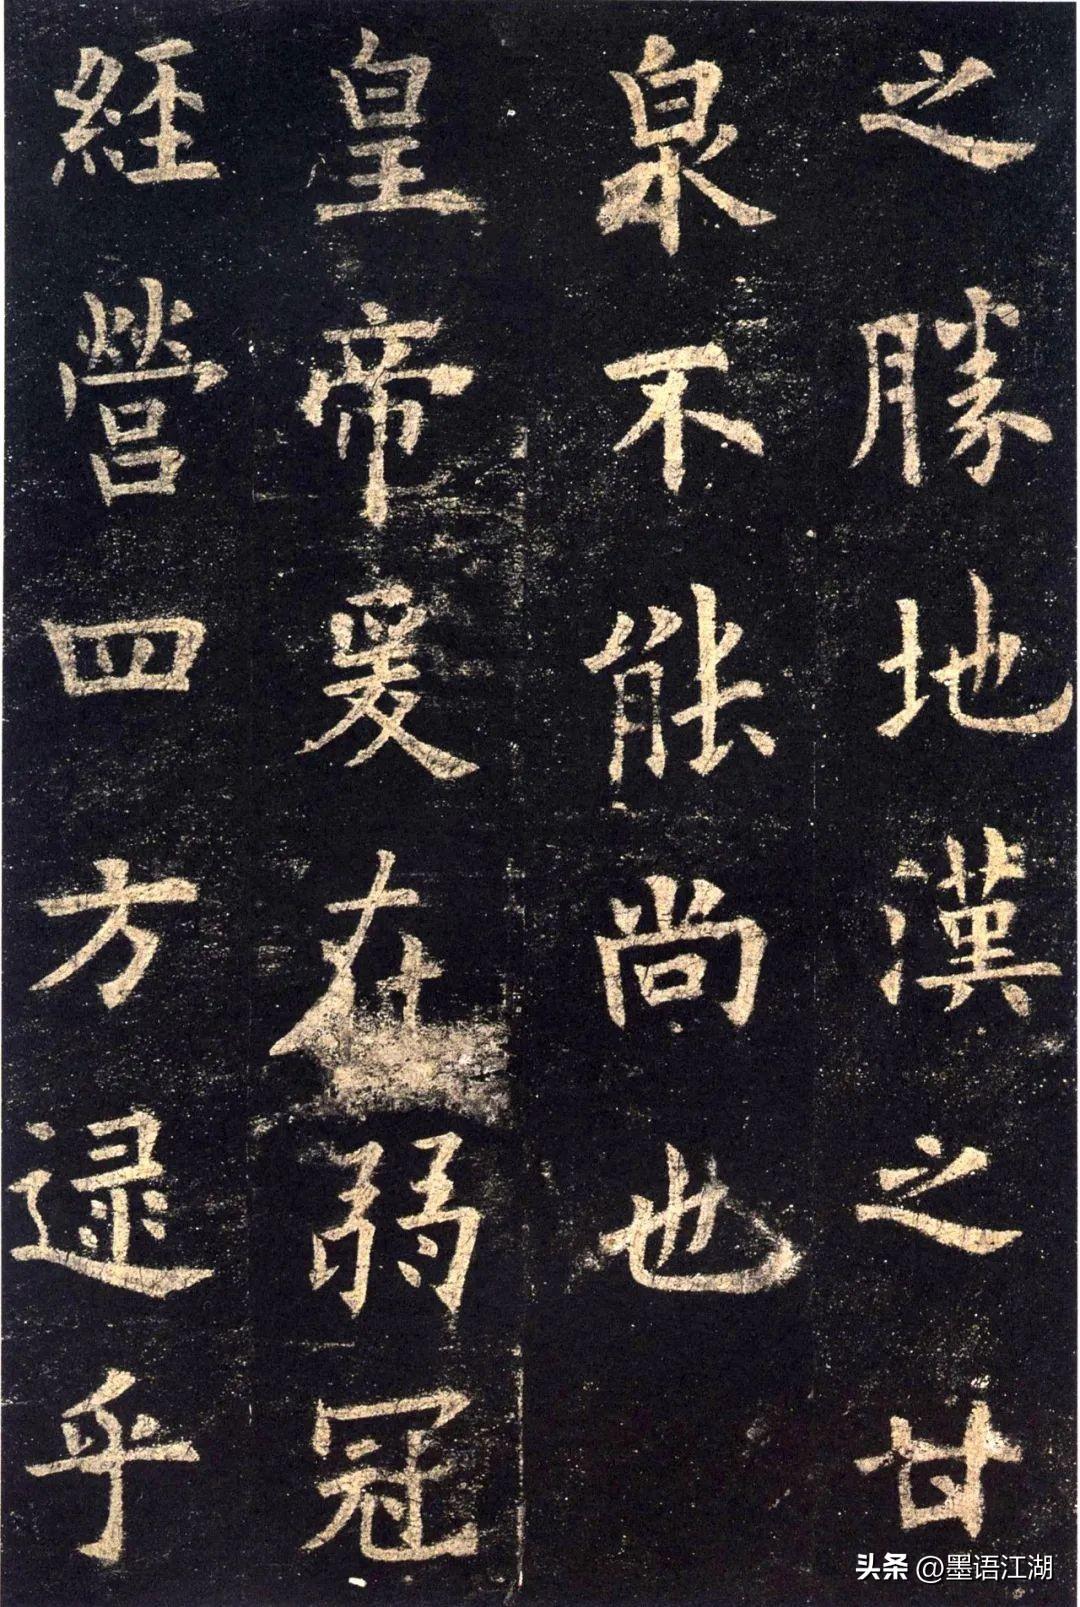 之勝地漢之甘
泉不能尚也
皇帝爰在弱冠
經營四方逮乎
头条 @墨语江湖